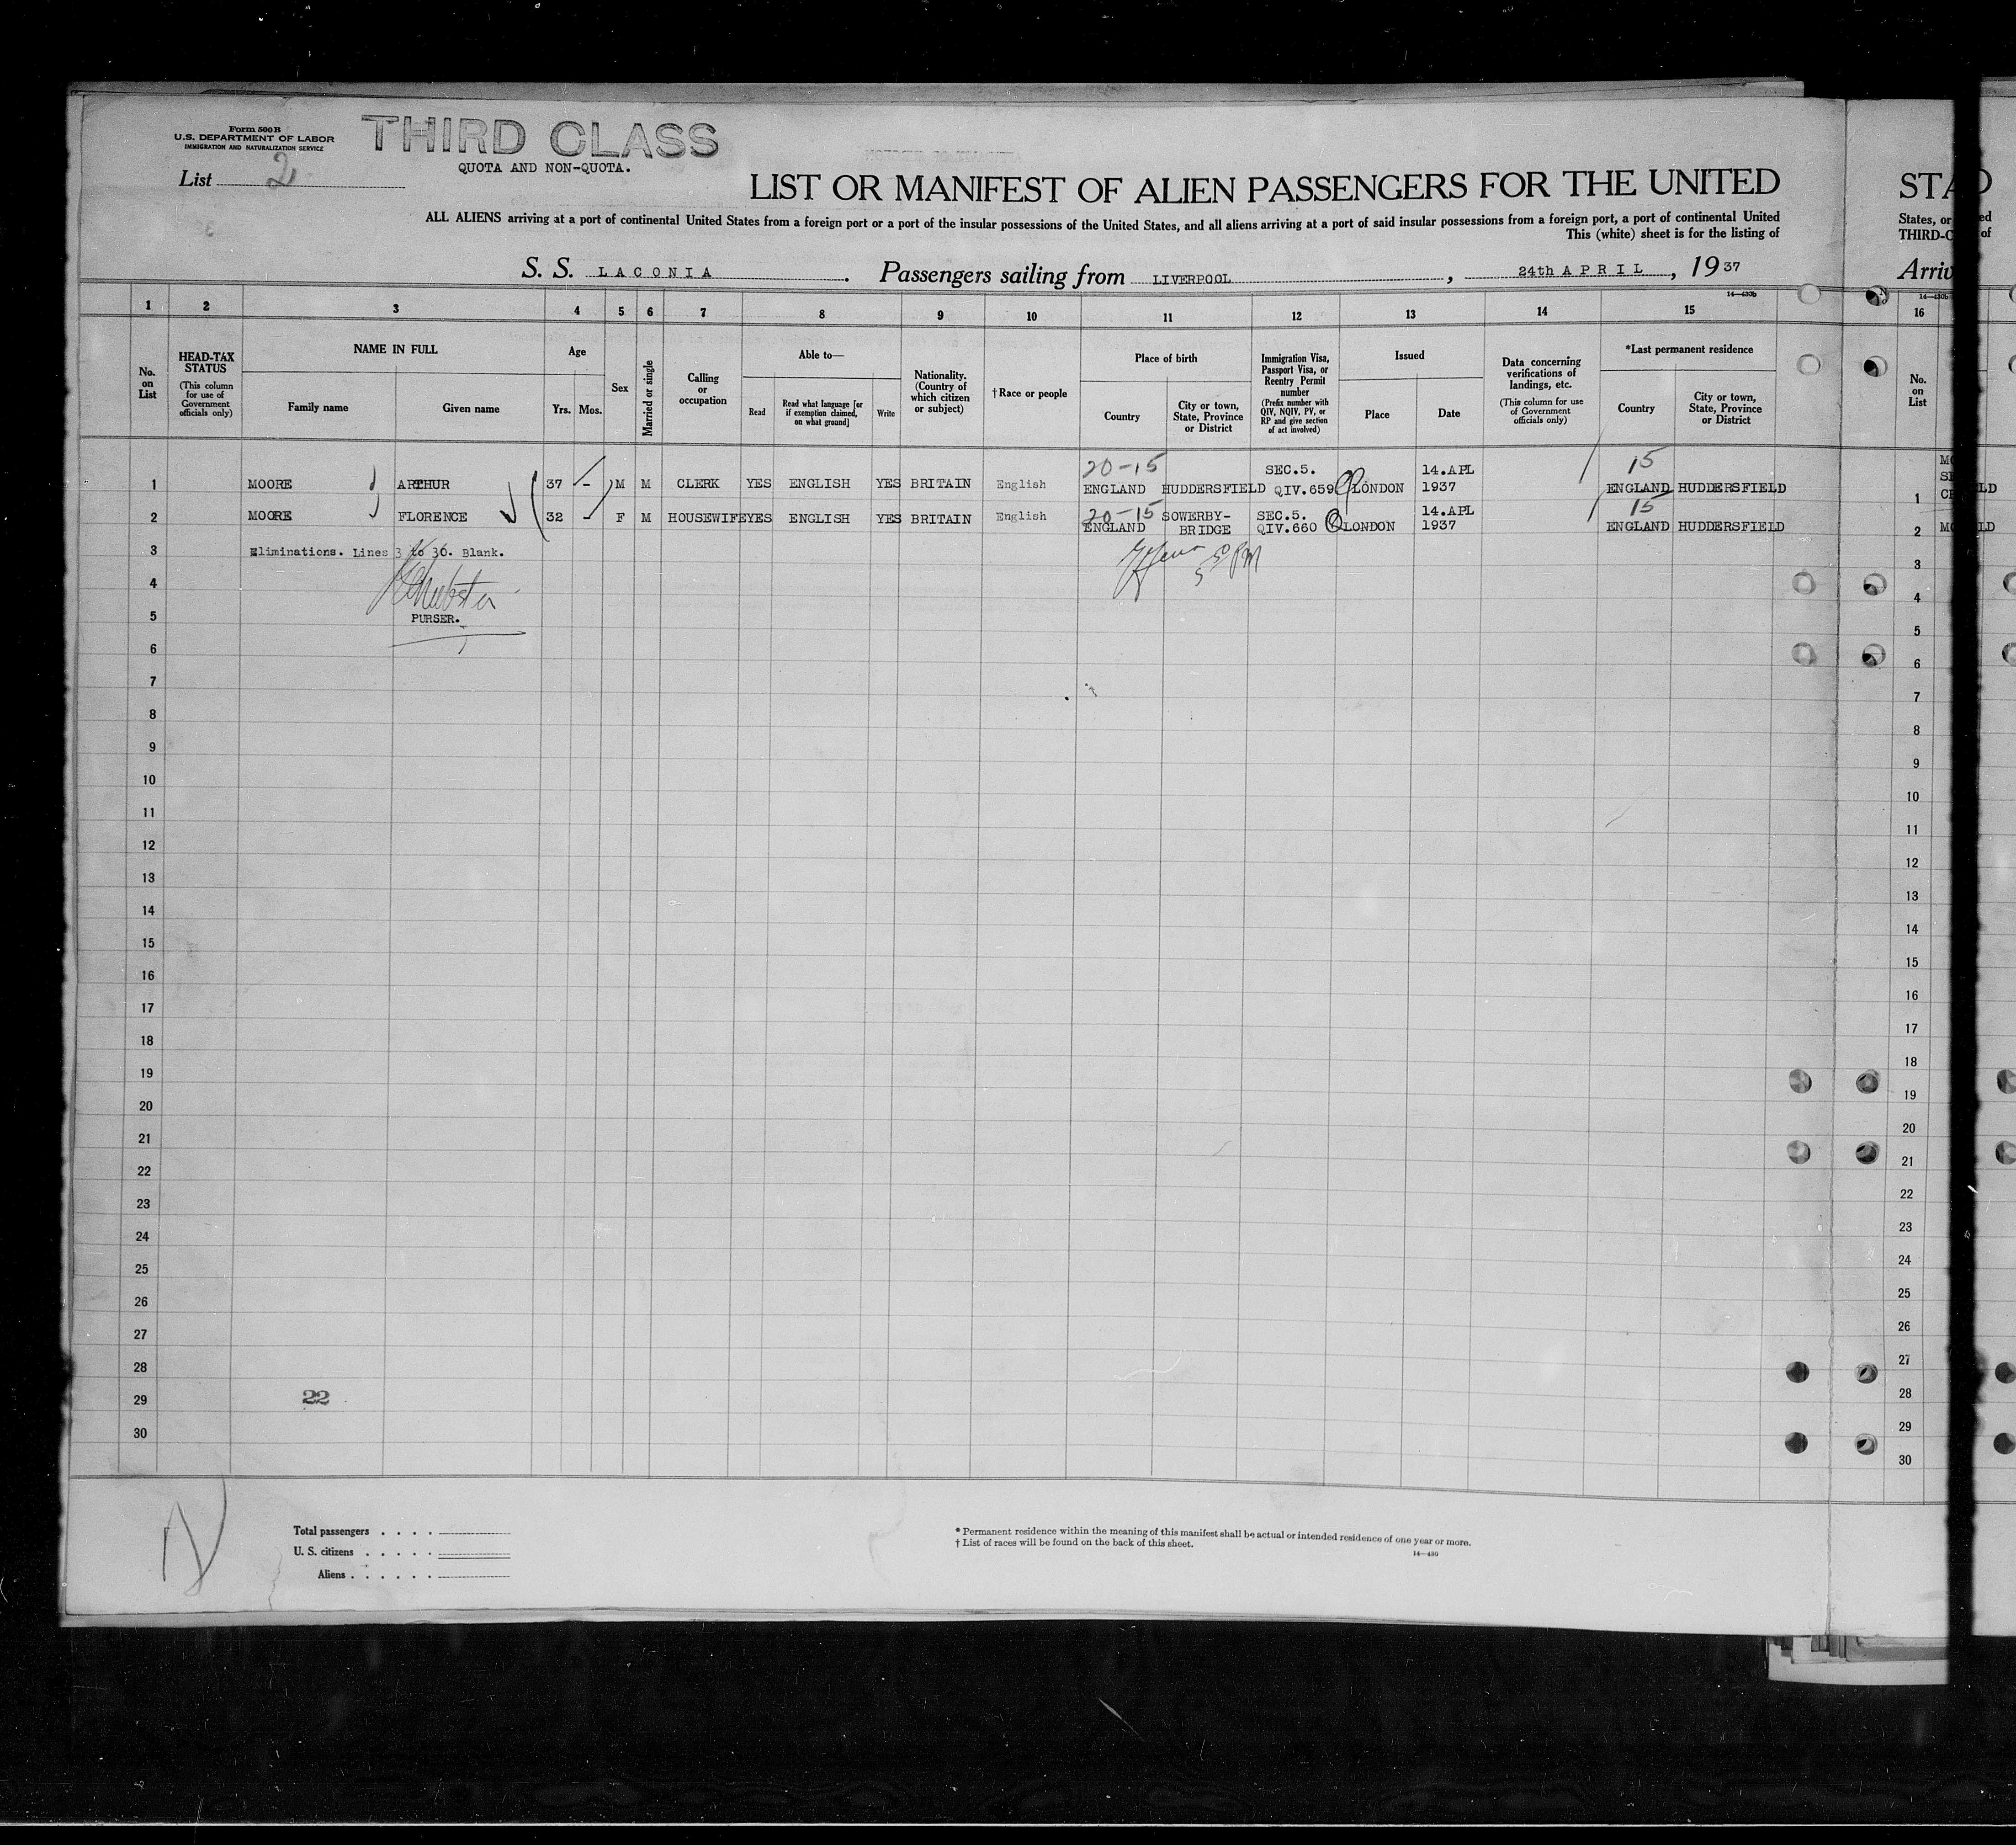 Form 500 B
U.S. DEPARTMENT OF LABOR
IMMIGRATION AND NATURALIZATION SERVICE
THIRD CLASS
QUOTA AND NON-QUOTA.
List 2
LIST OR MANIFEST OF ALIEN PASSENGERS FOR THE UNITED
ALL ALIENS arriving at a port of continental United States from a foreign port or a port of the insular possessions of the United States, and all aliens arriving at a port of said insular possessions from a foreign port, a port of continental United
This (white) sheet is for the listing of
S. S. LACONIA. Passengers sailing from LIVERPOOL, 24th APRIL, 1937
States, or
THIRD-C
14—430b
1 2 3 4 5 6 7 8 9 10 11 12 13 14 15 16
No. on List
HEAD-TAX STATUS (This column for use of Government officials only)
NAME IN FULL
Family name Given name
Age
Yrs. Mos.
Sex
Married or single
Calling or occupation
Able to—
Read Read what language [or if exemption claimed, on what ground] Write
Nationality. (Country of which citizen or subject)
† Race or people
Place of birth
Country City or town, State, Province or District
Immigration Visa, Passport Visa, or Reentry Permit number (Prefix number with QIV, NQIV, PV, or RP and give section of act involved)
Issued
Place Date
Data concerning verifications of landings, etc. (This column for use of Government officials only)
*Last permanent residence
Country City or town, State, Province or District
No. on List
20-15 SEC.5. 14.APL 15
1 MOORE ARTHUR 37 - M M CLERK YES ENGLISH YES BRITAIN English ENGLAND HUDDERSFIELD QIV.659 LONDON 1937 ENGLAND HUDDERSFIELD 1
20-15 SOWERBY- SEC.5. 14.APL 15
2 MOORE FLORENCE 32 - F M HOUSEWIFE YES ENGLISH YES BRITAIN English ENGLAND BRIDGE QIV.660 LONDON 1937 ENGLAND HUDDERSFIELD 2
3 Eliminations. Lines 3 to 30. Blank. 3
4 4
5 PURSER. 5
6 6
7 7
8 8
9 9
10 10
11 11
12 12
13 13
14 14
15 15
16 16
17 17
18 18
19 19
20 20
21 21
22 22
23 23
24 24
25 25
26 26
27 27
28 28
29 22 29
30 30
Total passengers
U. S. citizens
Aliens
* Permanent residence within the meaning of this manifest shall be actual or intended residence of one year or more.
† List of races will be found on the back of this sheet.
14—430